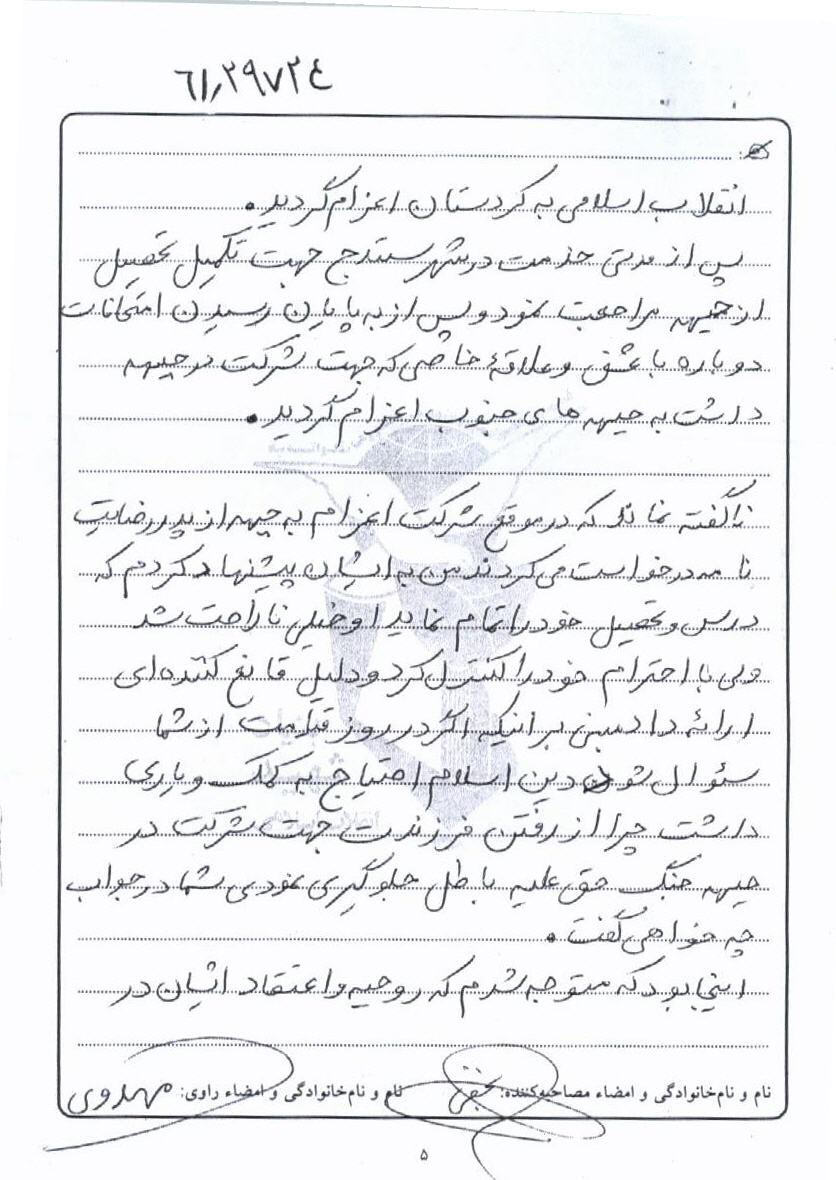 ۶۱٫۲۹۷۲۴
انقلاب اسلامی به کردستان اعزام گردید.
پس از مدتی خدمت در شهر سنندج جهت تکمیل تحصیل
از جبهه مراجعت نمود و پس از به پایان رسیدن امتحانات
دوباره با عشق و علاقهٔ خاصی که جهت شرکت در جبهه
داشت به جبهه های جنوب اعزام گردید.
ناگفته نماند که در موقع شرکت اعزام به جبهه از پدر رضایت
نامه درخواست می کردند من به ایشان پیشنهاد کردم که
درس و تحصیل خود را تمام نماید او خیلی ناراحت شد
ولی با احترام خود را کنترل کرد و دلیل قانع کننده ای
ارائه داد مبنی بر اینکه اگر در روز قیامت از شما
سئوال شود دین اسلام احتیاج به کمک و یاری
داشت چرا از رفتن فرزندت جهت شرکت در
جبهه جنگ حق علیه باطل جلوگیری نمودی شما در جواب
چه خواهی گفت.
اینجا بود که متوجه شدم که روحیه و اعتقاد ایشان در
نام و نام‌خانوادگی و امضاء مصاحبه‌کننده:
نام و نام‌خانوادگی و امضاء راوی: مهدوی
۵